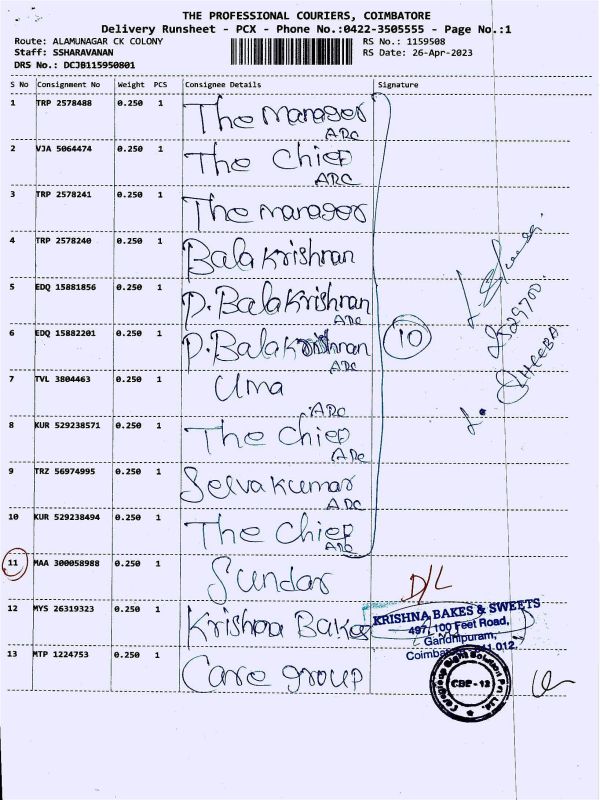 THE PROFESSIONAL COURIERS, COIMBATORE
Delivery Runsheet - PCX - Phone No.:0422-3505555 - Page No.:1
Route: ALAMUNAGAR CK COLONY
RS No.: 1159508
Staff: SSHARAVANAN
RS Date: 26-Apr-2023
DRS No.: DCJB115950801
S No Consignment No Weight PCS Consignee Details Signature
1 TRP 2578488 0.250 1 The manager
ARC
2 VJA 5064474 0.250 1 The Chief
ARC
3 TRP 2578241 0.250 1 The manager
4 TRP 2578240 0.250 1 Balakrishnan
5 EDQ 15881856 0.250 1 P. Balakrishnan
ARC
6 EDQ 15882201 0.250 1 P. Balakrishnan
ARC
10
7 TVL 3804463 0.250 1 Uma
ARC
SHEEBA
8 KUR 529238571 0.250 1 The Chief
ARC
9 TRZ 56974995 0.250 1 Selvakumar
ARC
10 KUR 529238494 0.250 1 The Chief
ARC
11 MAA 300058988 0.250 1 Sundar
D/L
12 MYS 26319323 0.250 1 Krishna Bakes
KRISHNA BAKES & SWEETS
497, 100 Feet Road,
Gandhipuram,
13 MTP 1224753 0.250 1 Care group
CBE-12